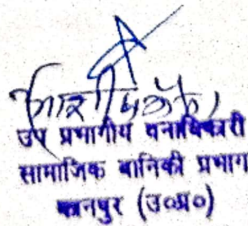 उप प्रभागीय वनाधिकारी
सामाजिक वानिकी प्रभाग
कानपुर (उ०प्र०)